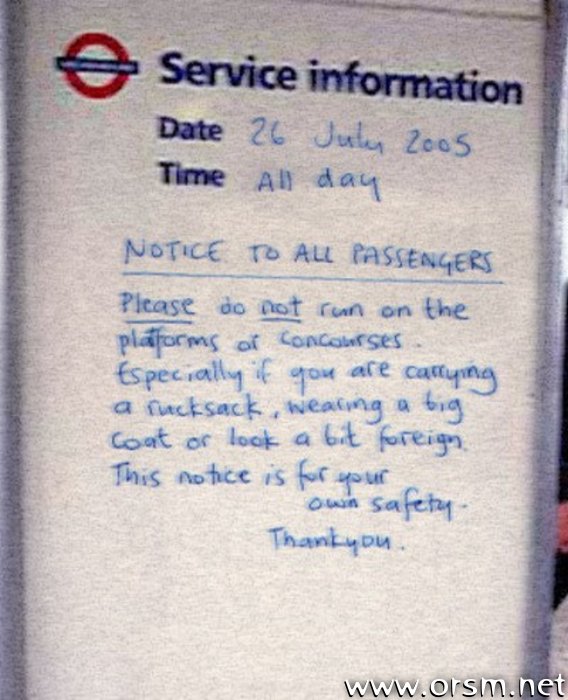 Service information
Date 26 July 2005
Time All day
NOTICE TO ALL PASSENGERS
Please do not run on the
platforms or concourses.
Especially if you are carrying
a rucksack, wearing a big
coat or look a bit foreign.
This notice is for your
own safety.
Thankyou.
www.orsm.net